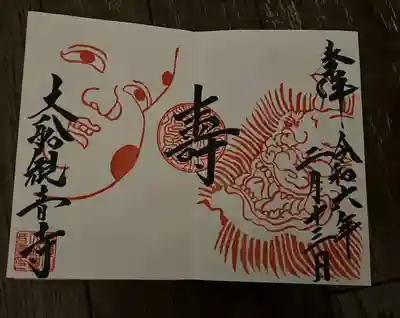 奉拝 令和六年
二月廿三日
寿
大船観音寺